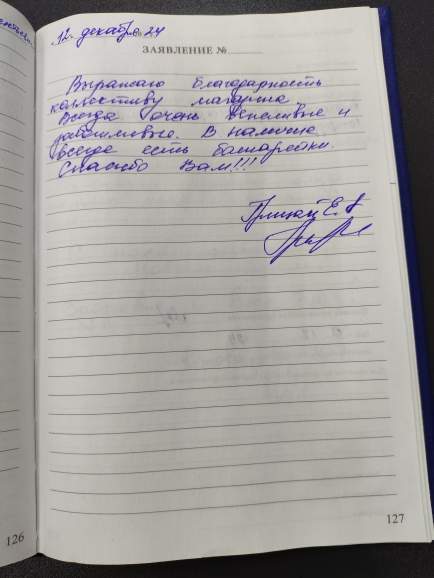 12 декабря 24
ЗАЯВЛЕНИЕ №
Выражаю благодарность
коллективу магазина
Всегда очень вежливые и
заботливые. В наличие
всегде есть батарейки.
Спасибо Вам!!!
Е.
126
127